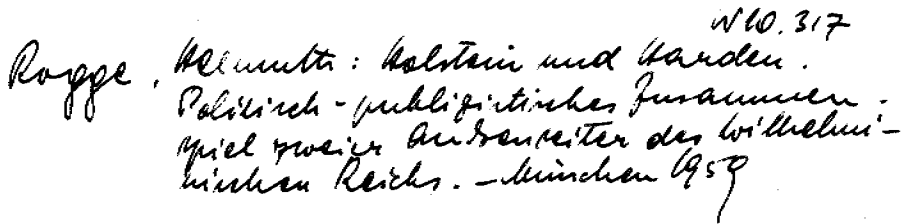 W 10.317
Rogge, Helmuth: Holstein und Harden.
Politisch-publizistisches Zusammen-
spiel zweier Außenseiter des Wilhelmi-
nischen Reichs. – München 1959